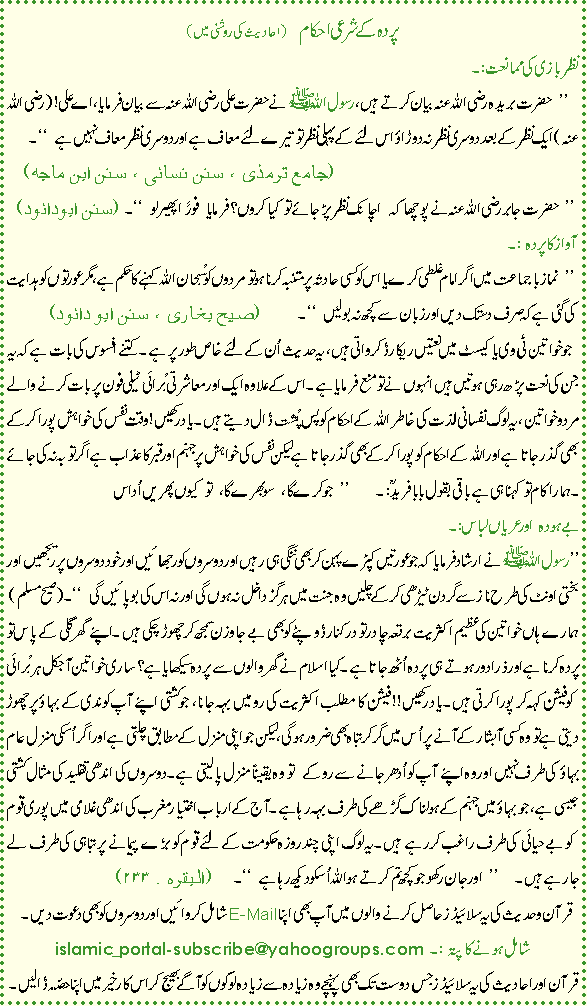 پردہ کے شرعی احکام (احادیث کی روشنی میں)
نظر بازی کی ممانعت:۔
’’ حضرت بریدہ رضی اللہ عنہ بیان کرتے ہیں، رسول اللہ ﷺ نے حضرت علی رضی اللہ عنہ سے بیان فرمایا، اے علی! (رضی اللہ
عنہ) ایک نظر کے بعد دوسری نظر نہ دوڑاؤ اس لئے کے پہلی نظر تو تیرے لئے معاف ہے اور دوسری نظر معاف نہیں ہے ‘‘۔
(جامع ترمذی ، سنن نسائی ، سنن ابن ماجه)
’’ حضرت جابر رضی اللہ عنہ نے پوچھا کہ اچانک نظر پڑ جائے تو کیا کروں؟ فرمایا فوراً پھیر لو ‘‘۔ (سنن ابودائود)
آواز کا پردہ :۔
’’ نماز با جماعت میں اگر امام غلطی کرے یا اس کو کسی حادثہ پر متنبہ کرنا ہو تو مردوں کو سُبحان اللہ کہنے کا حکم ہے، مگر عورتوں کو ہدایت
کی گئی ہے کہ صرف دستک دیں اور زبان سے کچھ نہ بولیں ‘‘۔ (صیح بخاری ، سنن ابودائود)
جو خواتین ٹی وی یا کیسٹ میں نعتیں ریکارڈ کرواتی ہیں، یہ حدیث اُن کے لئے خاص طور پر ہے۔ کتنے افسوس کی بات ہے کہ یہ
جن کی نعت پڑھ رہی ہوتیں ہیں انہوں نے تو منع فرمایا ہے۔ اس کے علاوہ ایک اور معاشرتی بُرائی ٹیلی فون پر بات کرنے والے
مرد و خواتین، یہ لوگ نفسانی لذت کی خاطر اللہ کے احکام کو پسِ پُشت ڈال دیتے ہیں۔ یاد رکھیں! وقت نفس کی خواہش پورا کر کے
بھی گذر جاتا ہے اور اللہ کے احکام کو پورا کر کے بھی گذر جاتا ہے لیکن نفس کی خواہش پر جہنم اور قبر کا عذاب ہے اگر توبہ نہ کی جائے
۔ ہمارا کام تو کہنا ہی ہے باقی بقول بابا فریدؒ:۔ ’’ جو کرے گا، سو بھرے گا، تو کیوں پھریں اُداس
بے ہودہ اور عریاں لباس:۔
’’ رسول اللہ ﷺ نے ارشاد فرمایا کہ جو عورتیں کپڑے پہن کر بھی ننگی ہی رہیں اور دوسروں کو رجھائیں اور خود دوسروں پر ریجھیں اور
بختی اونٹ کی طرح ناز سے گردن ٹیڑھی کر کے چلیں وہ جنت میں ہر گز داخل نہ ہوں گی اور نہ اس کی بو پائیں گی ‘‘۔ (صیح مسلم)
ہمارے ہاں خواتین کی عظیم اکثریت برقعہ چادر تو درکنار دُوپٹے کو بھی بے جا وزن سمجھ کر چھوڑ چکی ہیں۔ اپنے گھر گلی کے پاس تو
پردہ کرنا ہے اور ذرا دور ہوتے ہی پردہ اُٹھ جاتا ہے۔ کیا اسلام نے گھر والوں سے پردہ سیکھایا ہے؟ ساری خواتین آجکل ہر بُرائی
کو فیشن کہہ کر پورا کرتی ہیں۔ یاد رکھیں!! فیشن کا مطلب اکثریت کی رو میں بہہ جانا، جو کشتی اپنے آپ کو ندی کے بہاؤ پر چھوڑ
دیتی ہے تو وہ کسی آبشار کے آنے پر اُس میں گر کر تباہ بھی ضرور ہوگی لیکن جو اپنی منزل کے مطابق چلتی ہے اور اگر اُسکی منزل عام
بہاؤ کی طرف نہیں اور وہ اپنے آپ کو اُدھر جانے سے روکے تو وہ یقیناً منزل پالیتی ہے۔ دوسروں کی اندھی تقلید کی مثال کشتی
جیسی ہے، جو بہاؤ میں جہنم کے ہولناک گڑھے کی طرف بہہ رہا ہے۔ آج کے ارباب اختیار مغرب کی اندھی غلامی میں پوری قوم
کو بے حیائی کی طرف راغب کر رہے ہیں۔ یہ لوگ اپنی چند روزہ حکومت کے لئے قوم کو بڑے پیمانے پر تباہی کی طرف لے
جا رہے ہیں۔ ’’ اور جان رکھو جو کچھ تم کرتے ہو اللہ اُسکو دیکھ رہا ہے ‘‘۔ (البقره . ۲۳۳)
قرآن و حدیث کی یہ سلائیڈز حاصل کرنے والوں میں آپ بھی اپنا E-Mail شامل کروائیں اور دوسروں کو بھی دعوت دیں۔
شامل ہونے کا پتہ:۔ islamic_portal-subscribe@yahoogroups.com
قرآن اور احادیث کی یہ سلائیڈز جس دوست تک بھی پہنچے وہ زیادہ سے زیادہ لوگوں کو آگے بھیج کر اس کارِ خیر میں اپنا حصّہ ڈالیں۔